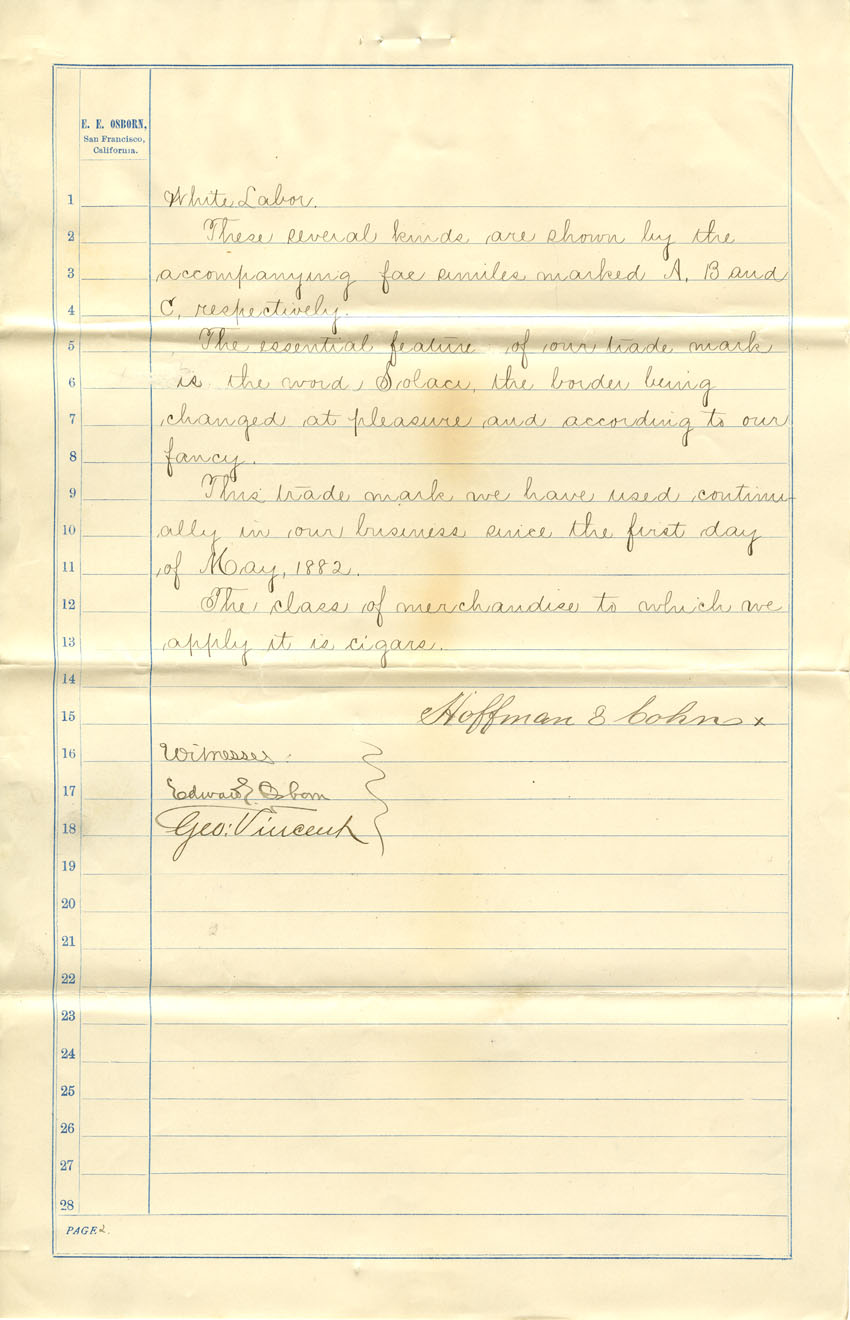 E. E. OSBORN,
San Francisco,
California.
1 White Labor.
2 These several kinds are shown by the
3 accompanying fac similes marked A, B and
4 C, respectively.
5 The essential feature of our trade mark
6 is the word Solace, the border being
7 changed at pleasure and according to our
8 fancy.
9 This trade mark we have used continu-
10 ally in our business since the first day
11 of May, 1882.
12 The class of merchandise to which we
13 apply it is cigars.
14
15 Hoffman & Cohn x
16 Witnesses
17 Edward E. Osborn
18 Geo: Vincent
19
20
21
22
23
24
25
26
27
28
PAGE 2.